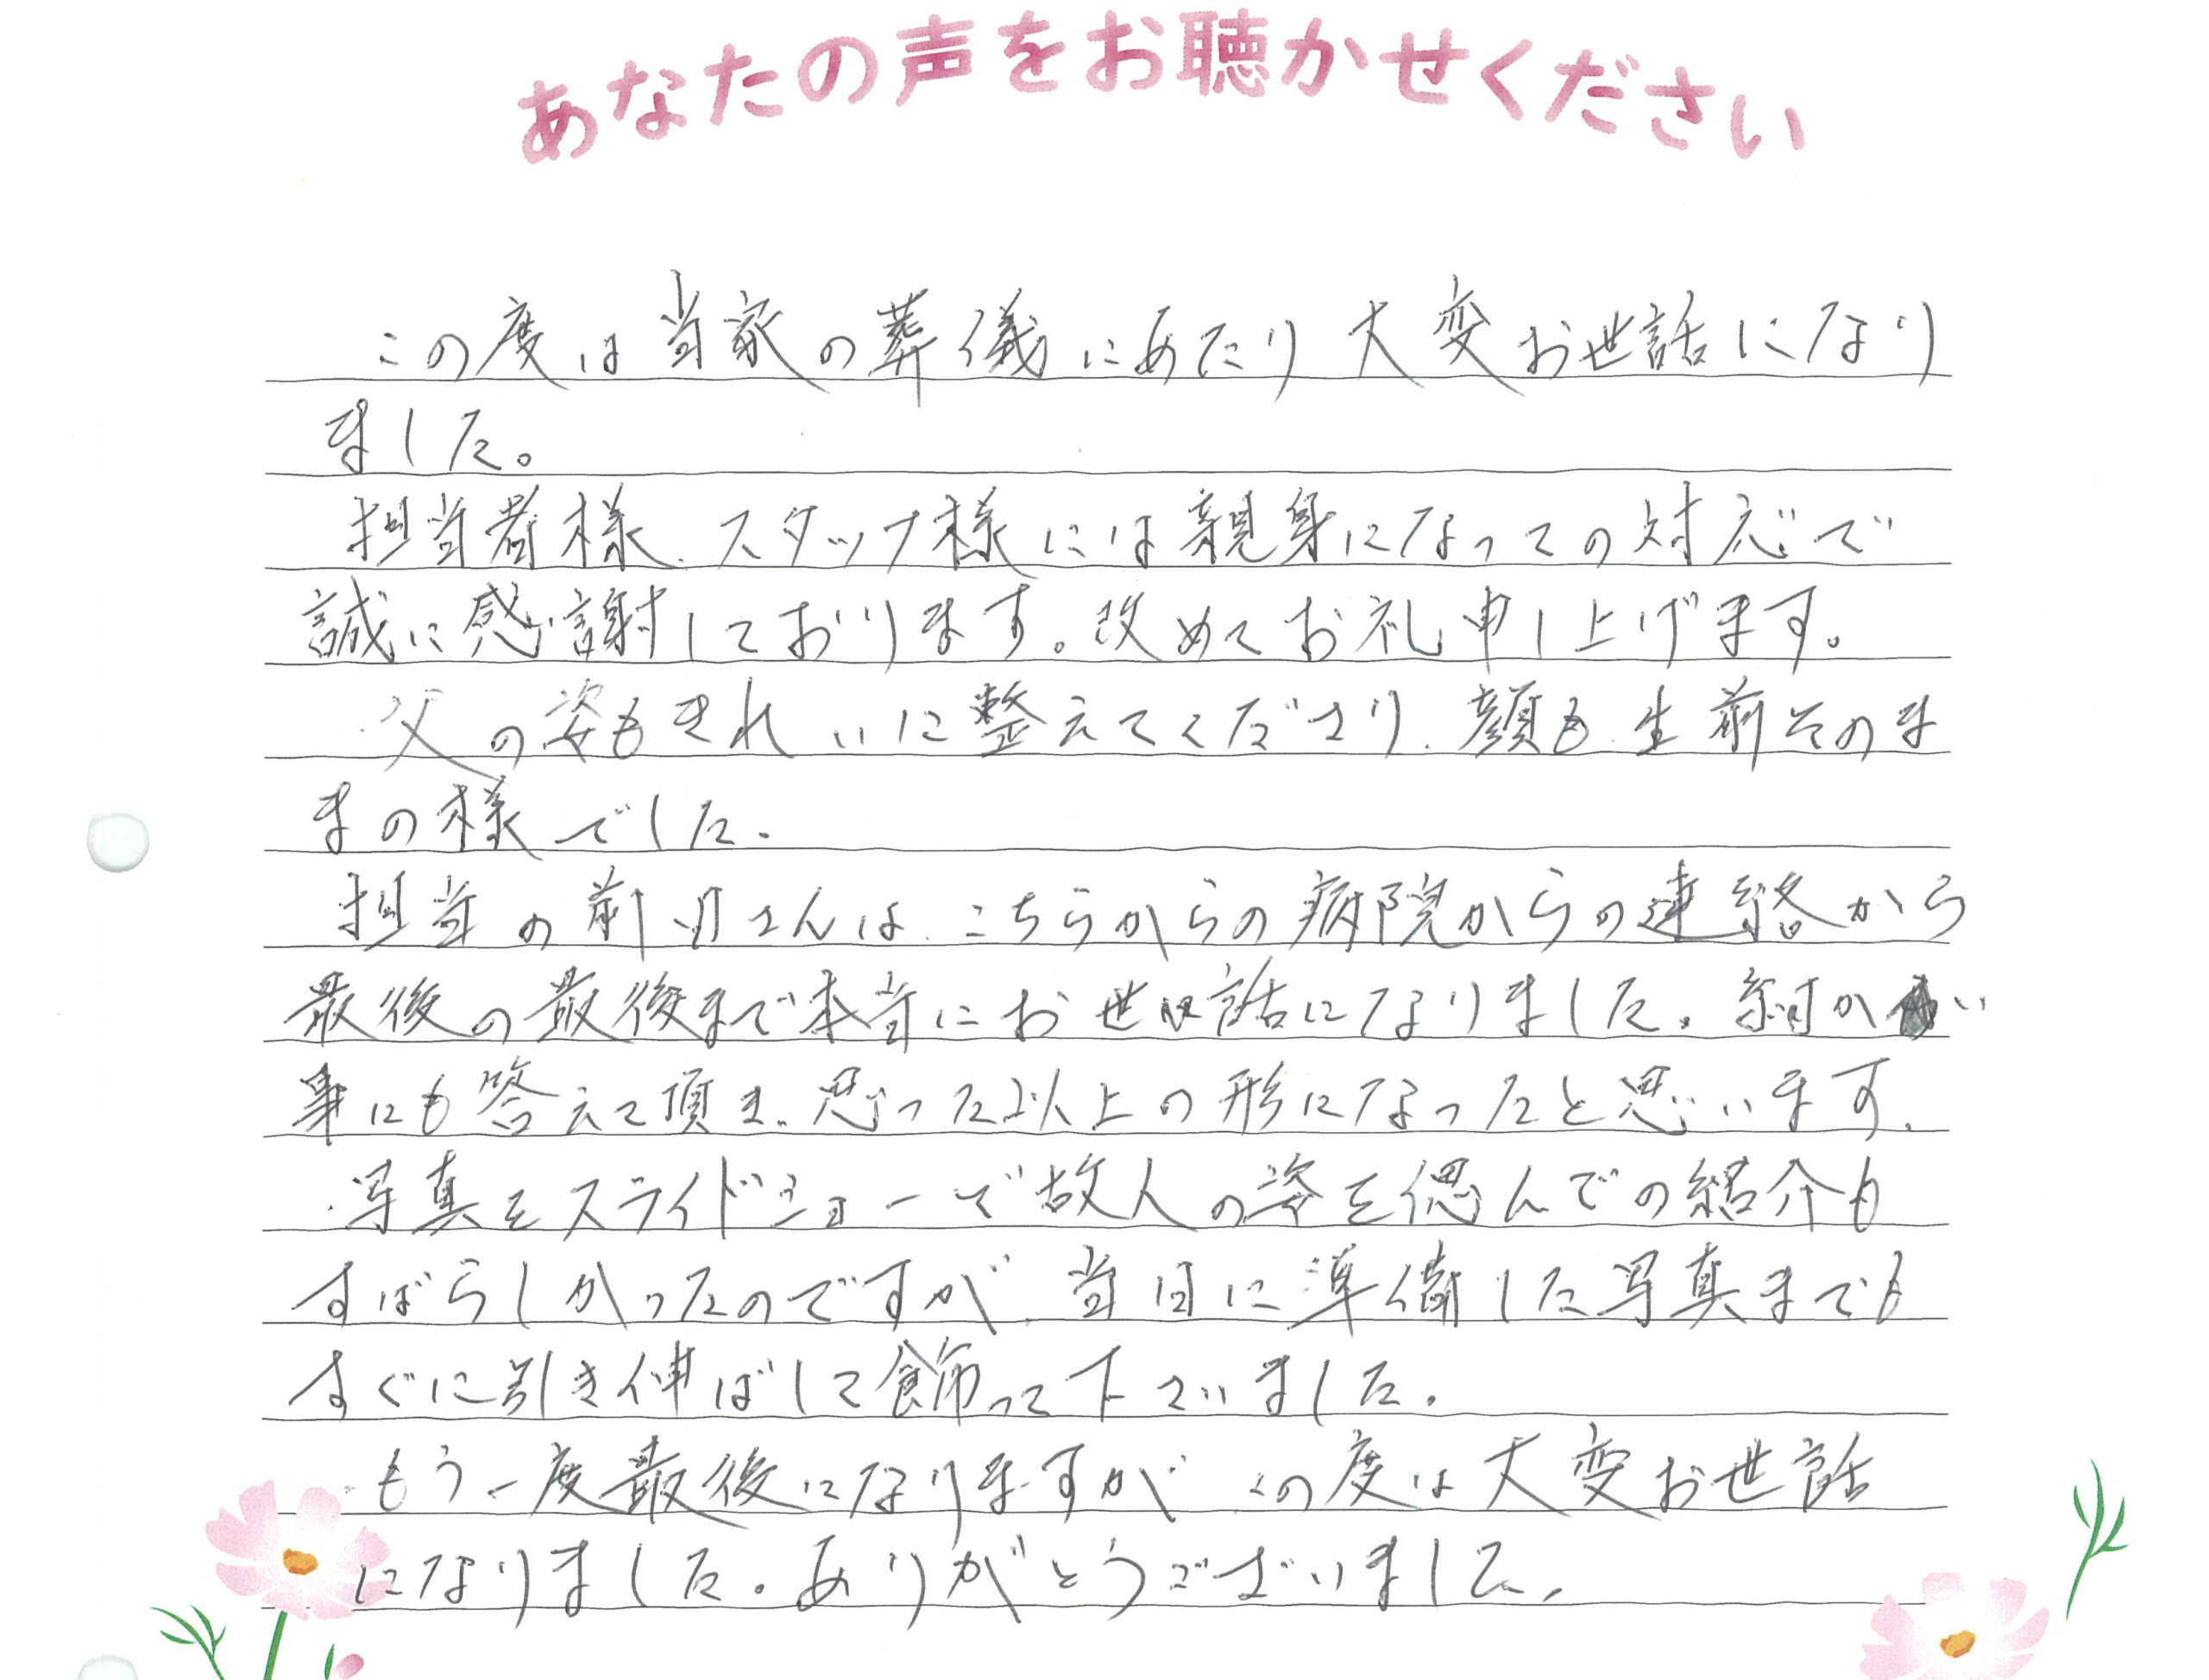 あなたの声をお聴かせください
この度は当家の葬儀にあたり大変お世話になり
ました。
担当者様、スタッフ様には親身になっての対応で
誠に感謝しております。改めてお礼申し上げます。
父の姿もきれいに整えてくださり、顔も生前そのま
まの様でした。
担当の前田さんは、こちらからの病院からの連絡から
最後の最後まで本当にお世話になりました。細かい
事にも答えて頂き、思った以上の形になったと思います。
写真をスライドショーで故人の姿を偲んでの紹介も
すばらしかったのですが、当日に準備した写真までも
すぐに引き伸ばして飾って下さいました。
もう一度最後になりますが、この度は大変お世話
になりました。ありがとうございました。